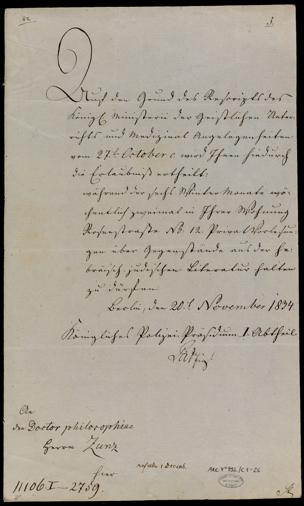 42
1.
Auf den Grund des Rescripts des
Königl. Ministerii der Geistlichen Unter-
richts und Medizinal Angelegenheiten
vom 27.t October c wird Ihnen hiedurch
die Erlaubniß ertheilt:
während der sechs Winter Monate wö-
chentlich zweimal in Ihrer Wohnung
Rosenstraße No 12. Privat Vorlesun-
gen über Gegenstände aus der he-
bräisch jüdischen Literatur halten
zu dürfen
Berlin, den 20.t November 1834
Königliches Polizei Präsidium I. Abtheil.
An
den Doctor philosophiae
Herrn Zunz
hier
11106 I—2759.